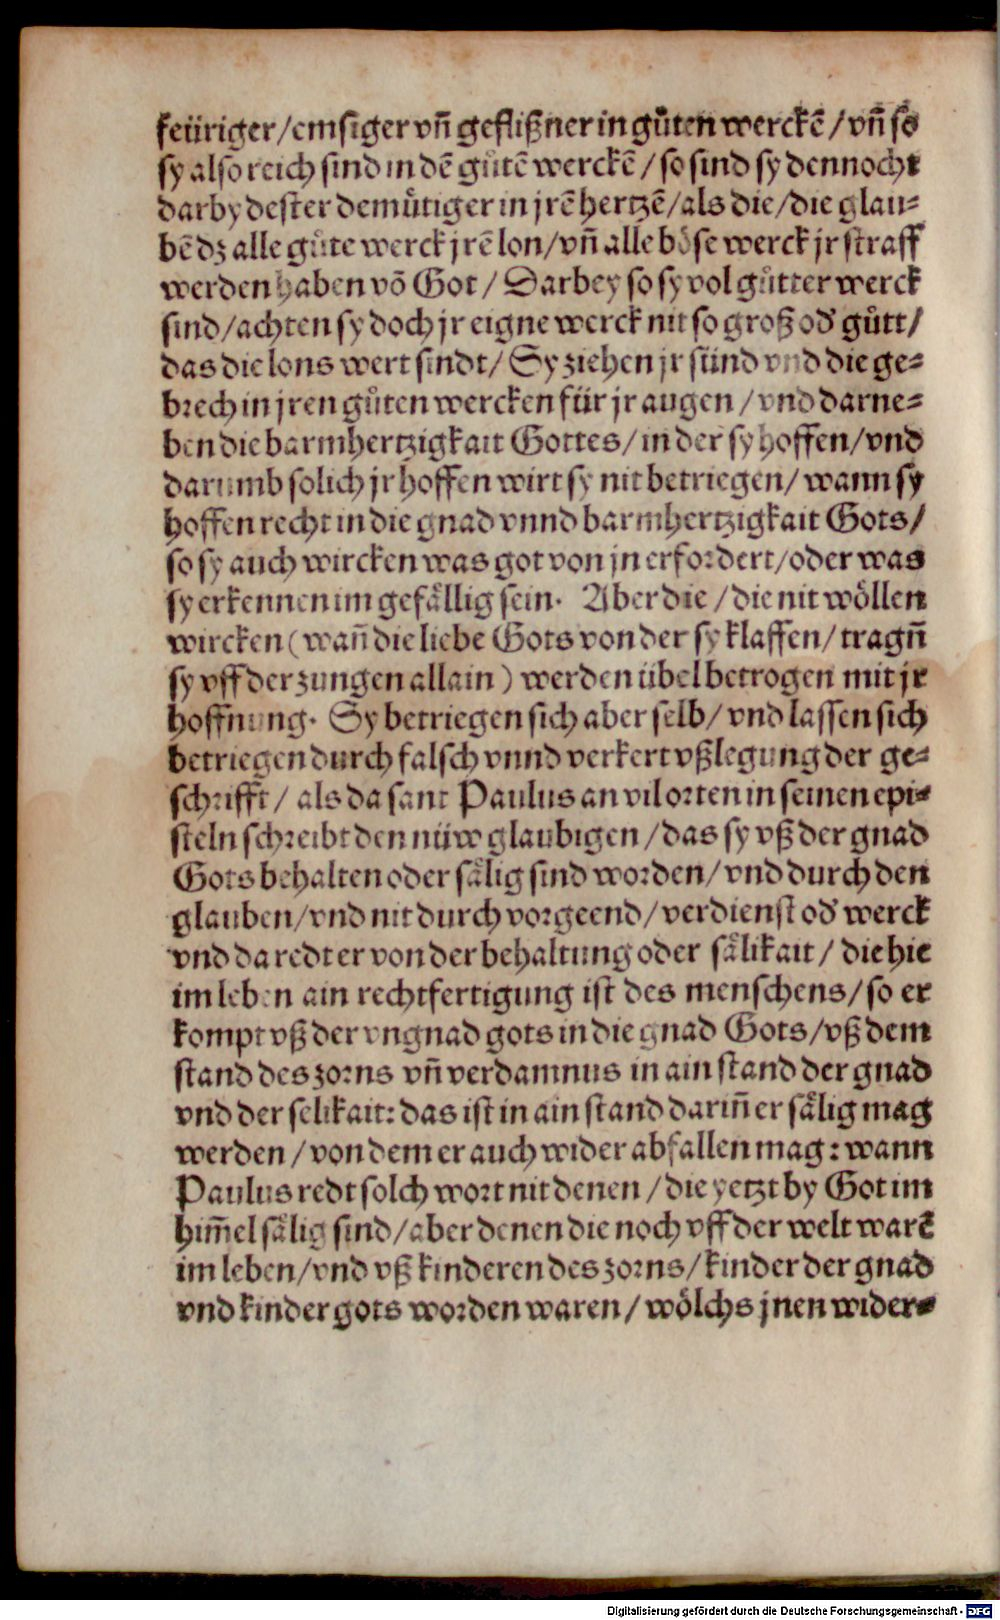 feüriger/emsiger vñ geflißner in gůten werckē/vñ so
sy also reich sind in dē gůtē werckē/so sind sy dennocht
darby dester demůtiger in jrē hertzē/als die/die glau⸗
bē dz alle gůte werck jrē lon/vñ alle böse werck jr straff
werden haben võ Got/Darbey so sy vol gůtter werck
sind/achten sy doch jr eigne werck nit so groß oď gůtt/
das die lons wert sindt/Sy ziehen jr sünd vnd die ge⸗
brech in jren gůten wercken für jr augen/vnd darne⸗
ben die barmhertzigkait Gottes/in der sy hoffen/vnd
darumb solich jr hoffen wirt sy nit betriegen/wann sy
hoffen recht in die gnad vnnd barmhertzigkait Gots/
so sy auch wircken was got von jn erfordert/oder was
sy erkennen im gefällig sein. Aber die/die nit wöllen
wircken (wañ die liebe Gots von der sy klaffen/tragñ
sy vff der zungen allain) werden übel betrogen mit jr
hoffnung. Sy betriegen sich aber selb/vnd lassen sich
betriegen durch falsch vnnd verkert vßlegung der ge⸗
schrifft/als da sant Paulus an vil orten in seinen epi⸗
steln schreibt den nüw glaubigen/das sy vß der gnad
Gots behalten oder sälig sind worden/vnd durch den
glauben/vnd nit durch vorgeend/verdienst oď werck
vnd da redt er von der behaltung oder sälikait/die hie
im leben ain rechtfertigung ist des menschens/so er
kompt vß der vngnad gots in die gnad Gots/vß dem
stand des zorns vñ verdamnus in ain stand der gnad
vnd der selikait: das ist in ain stand dariñ er sälig mag
werden/von dem er auch wider abfallen mag: wann
Paulus redt solch wort nit denen/die yetzt by Got im
him̄el sälig sind/aber denen die noch vff der welt warē
im leben/vnd vß kinderen des zorns/kinder der gnad
vnd kinder gots worden waren/wölchs jnen wider⸗
Digitalisierung gefördert durch die Deutsche Forschungsgemeinschaft - DFG